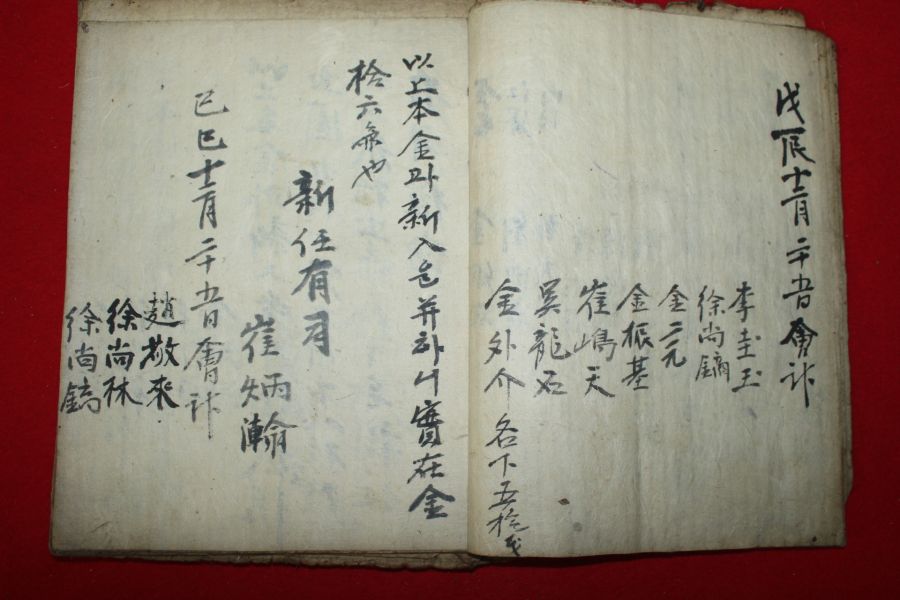 戊辰十二月二十五日會計
李圭玉
徐尚鏑
金元
金振基
崔嶋天
吳龍石
金外介 各下五拾戔
以上本金과新入은并하니實在金
拾六兩也
新任有司
崔炳瀚
己巳十二月二十五日會計
趙敬來
徐尚林
徐尚鎬